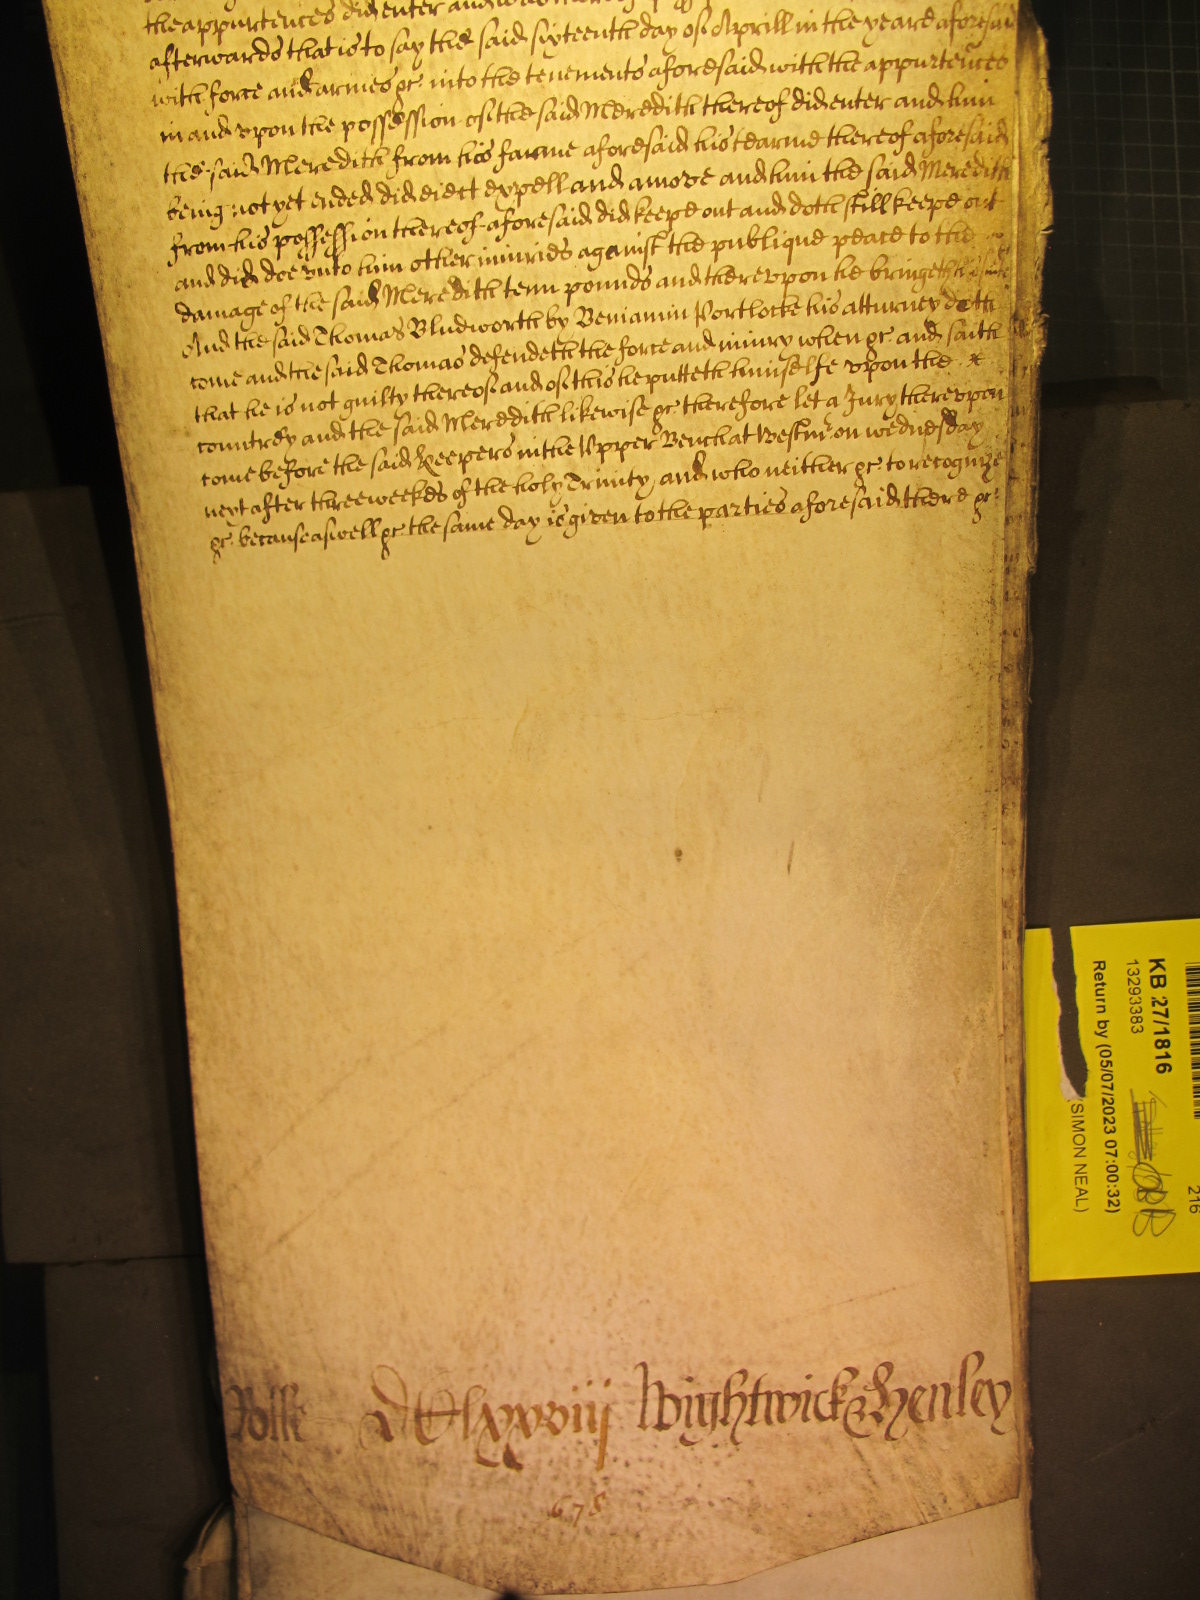 the appurtences did enter and was thereof
afterwards that is to say the said sixteenth day of Aprill in the yeare aforesaid
with force and armes &c into the tenements aforesaid with the appurtences
in and vpon the possession of the said Meredith thereof did enter and him
the said Meredith from his farme aforesaid his tearme thereof aforesaid
being not yet ended did eiect expell and amove and him the said Meredith
from his possession thereof aforesaid did keepe out and doth still keepe out
and did doe vnto him other iniuries against the publique peace to the
damage of the said Meredith tenn pounds and therevpon he bringeth
And the said Thomas Bludworth by Beniamin Portlocke his atturney doth
come and the said Thomas defendeth the force and iniury when &c and saith
that he is not guilty thereof and of this he putteth himselfe vpon the
countrey and the said Meredith likewise &c therefore let a Jury therevpon
come before the said Keepers in the Vpper Bench at Westmr on wednesday
next after three weekes of the holy Trinity and who neither &c to recognize
&c because aswell &c the same day is given to the parties aforesaid there &c
Rolle DClxxviij Wightwick & Henley
678
KB 27/1816
13293383
Return by (05/07/2023 07:00:32)
(SIMON NEAL)
216